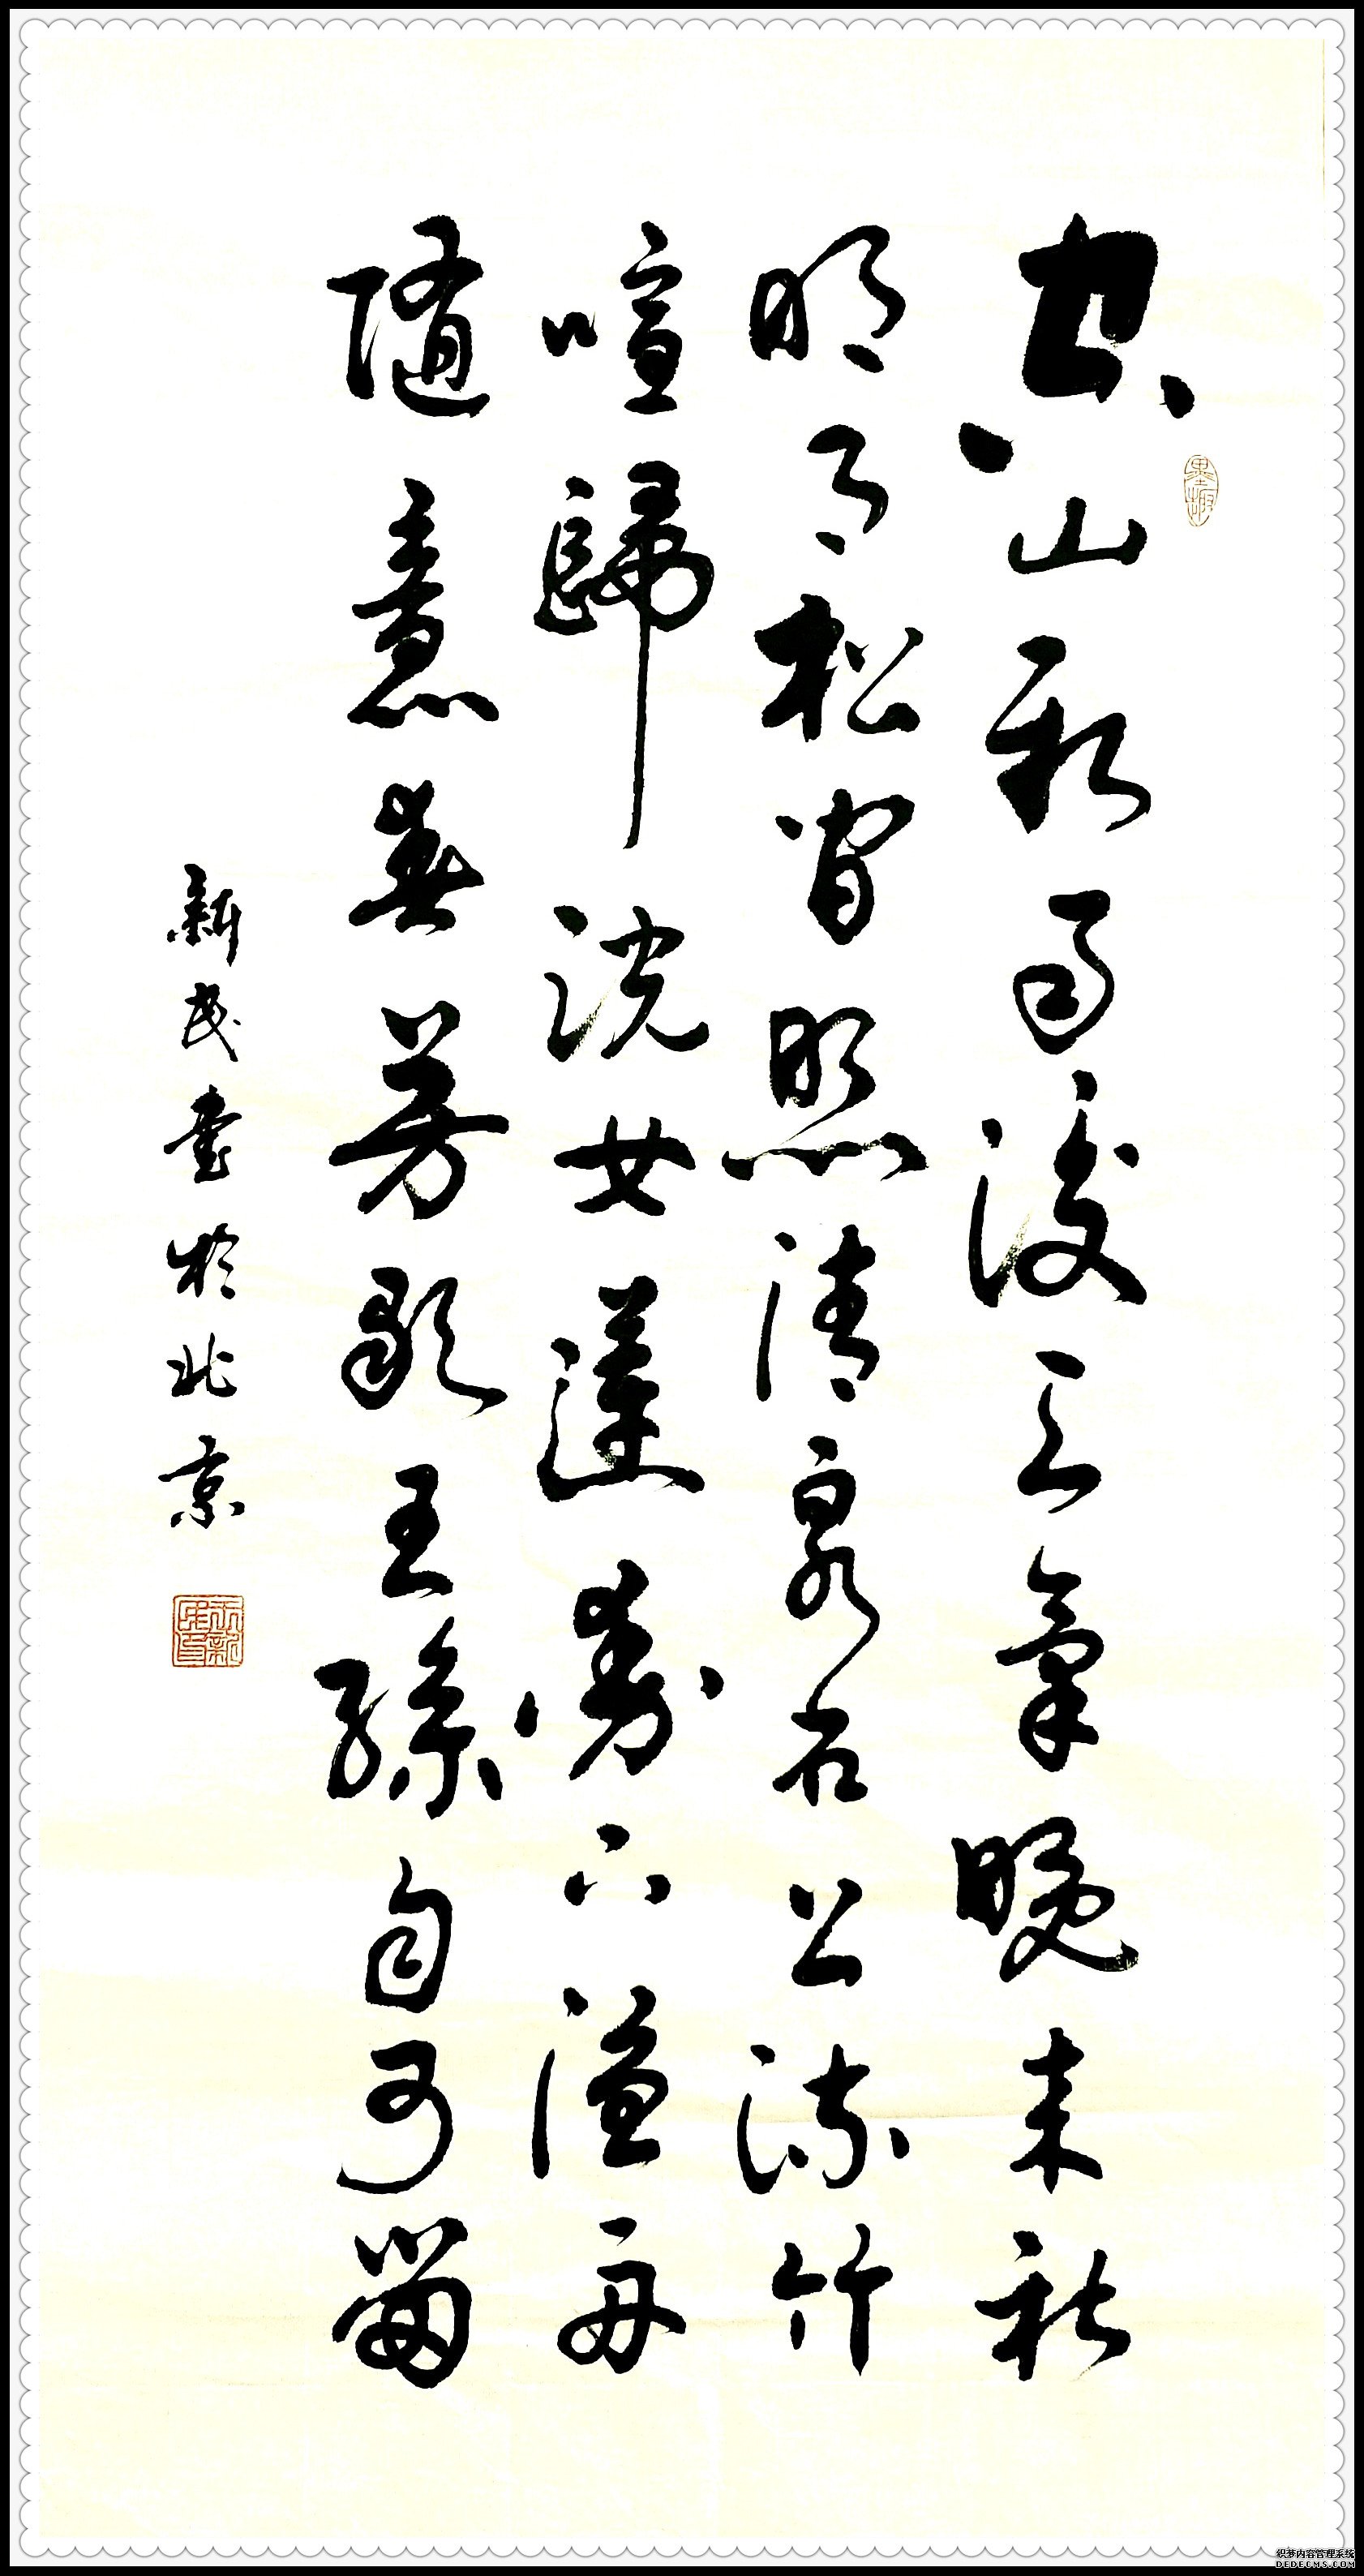 空山新雨後天氣晚來秋
明月松間照清泉石上流竹
喧歸浣女蓮動下漁舟
隨意春芳歇王孫自可留
新民書於北京
墨趣
织梦内容管理系统
DEDECMS.COM